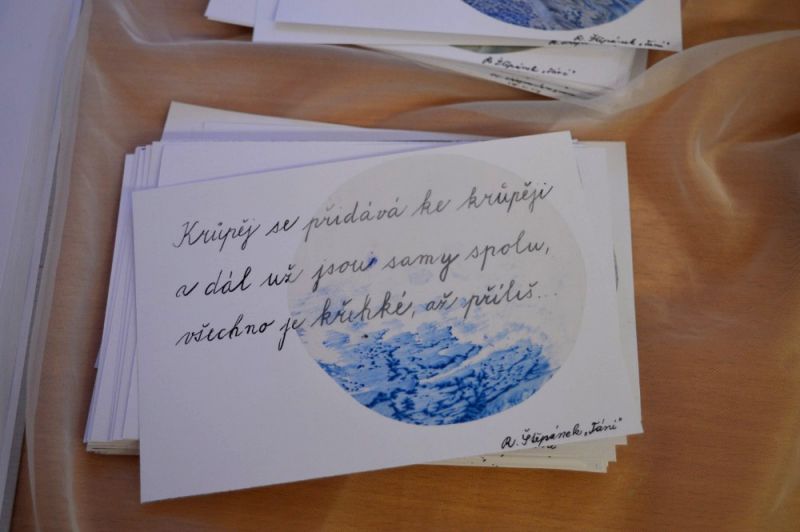 R. Štěpánek „Táni"
R. Štěpánek „Táni"
Krůpěj se přidává ke krůpěji
a dál už jsou samy spolu,
všechno je křehké, až příliš...
R. Štěpánek „Táni"